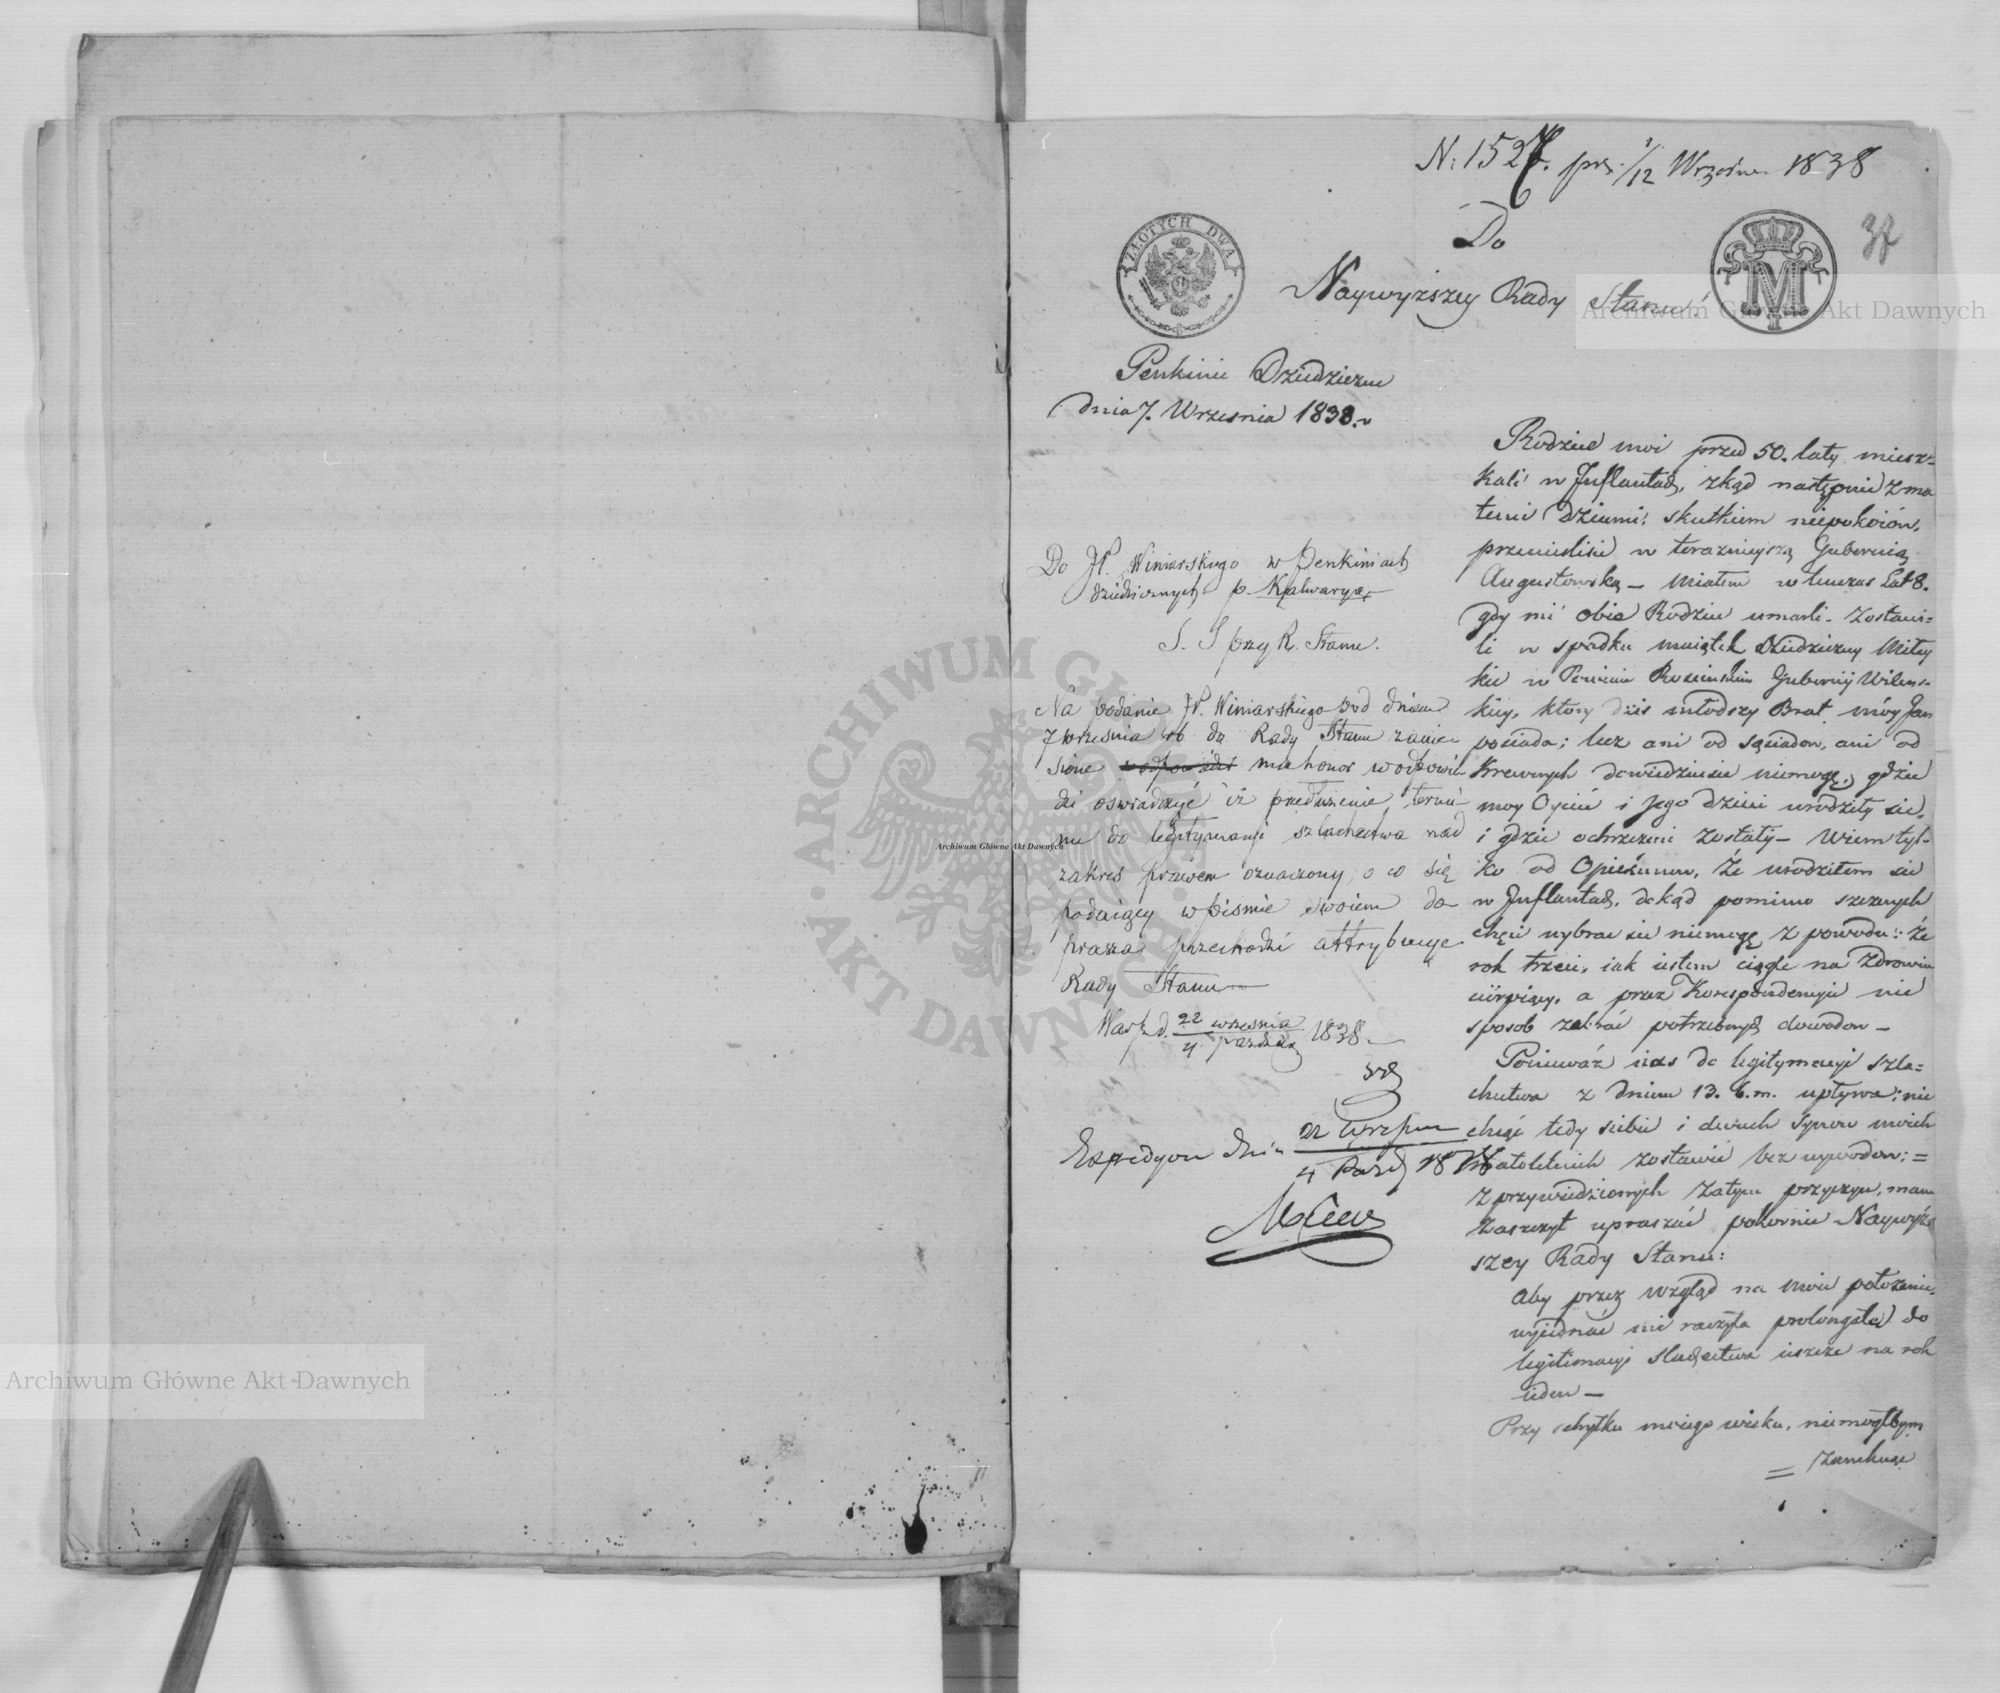 N. 1527. prz. 1/12 Wrześn. 1838
37
ZŁOTYCH DWA
Do
Naywyższey Rady Stanu!
M
Penkinie Dziedziczne
dnia 7. Września 1838. r
Rodzice moi przed 50. laty miesz=
kali w Inflantach, zkąd następnie z ma
łemi dziećmi, skutkiem niepokoiów,
przenieśli się w teraznieyszą Gubernią
Augustowską – Miałem w tenczas lat 8.
gdy mi obie Rodzice umarli. Zostawi=
li w spadku maiątek Dziedziczny Mitey
kie w Powiecie Rosieńskim Gubernii Wileńs-
kiey, który dziś młodszy Brat móy Jan
posiada; lecz ani od sąsiadow, ani od
Krewnych dowiedzieć się niemogę, gdzie
moy Oyciec i jego dzieci urodziły się,
i gdzie ochrzczeni zostały – Wiem tyl-
ko od Opiekunów, że urodziłem się
w Inflantach, dokąd pomimo szczerych
chęci wybrać się niemogę z powodu: że
rok trzeci, iak iestem ciągle na zdrowiu
cierpiący, a przez Korespondencyie nie
sposob zebrać potrzebnych dowodow –
Ponieważ czas do legitymacyi szla=
chectwa z dniem 13. b. m. upływa; nie
chcąc tedy siebie i dwuch synow moich
Małoletnich zostawić bez wywodow: =
z przywiedzionych zatym przyczyn, mam
zaszczyt upraszać pokornie Naywyż
szey Rady Stanu:
Aby przez wzgląd na moie położenie,
wyiednać mi raczyła prolongatę do
legitimacyi Slachectwa ieszcze na rok
ieden –
Przy schyłku moiego wieku, niemógłbym
= zamkuąć
Do JP. Winiarskiego w Penkiniach
dziedzicznych p. Kalwaryą
S. S przy R. Stanu.
Na podanie JP. Winiarskiego pod dniem
7 września rb do Rady Stanu zanie-
sione w odpowiedzi ma honor w odpowie
dzi oświadczyć iż przedłużenie termi-
nu do legitymacyi szlachectwa nad
zakres prawem oznaczony, o co się
podaiący w piśmie swoiem do-
prasza przechodzi attrybucye
Rady Stanu
Warsz. d. 22 września / 4 paźdz. 1838
Expedyow dnia 22 Wrześn / 4 Paźdz 1838
Archiwum Główne Akt Dawnych
Archiwum Główne Akt Dawnych
Archiwum Główne Akt Dawnych
ARCHIWUM GŁÓWNE AKT DAWNYCH